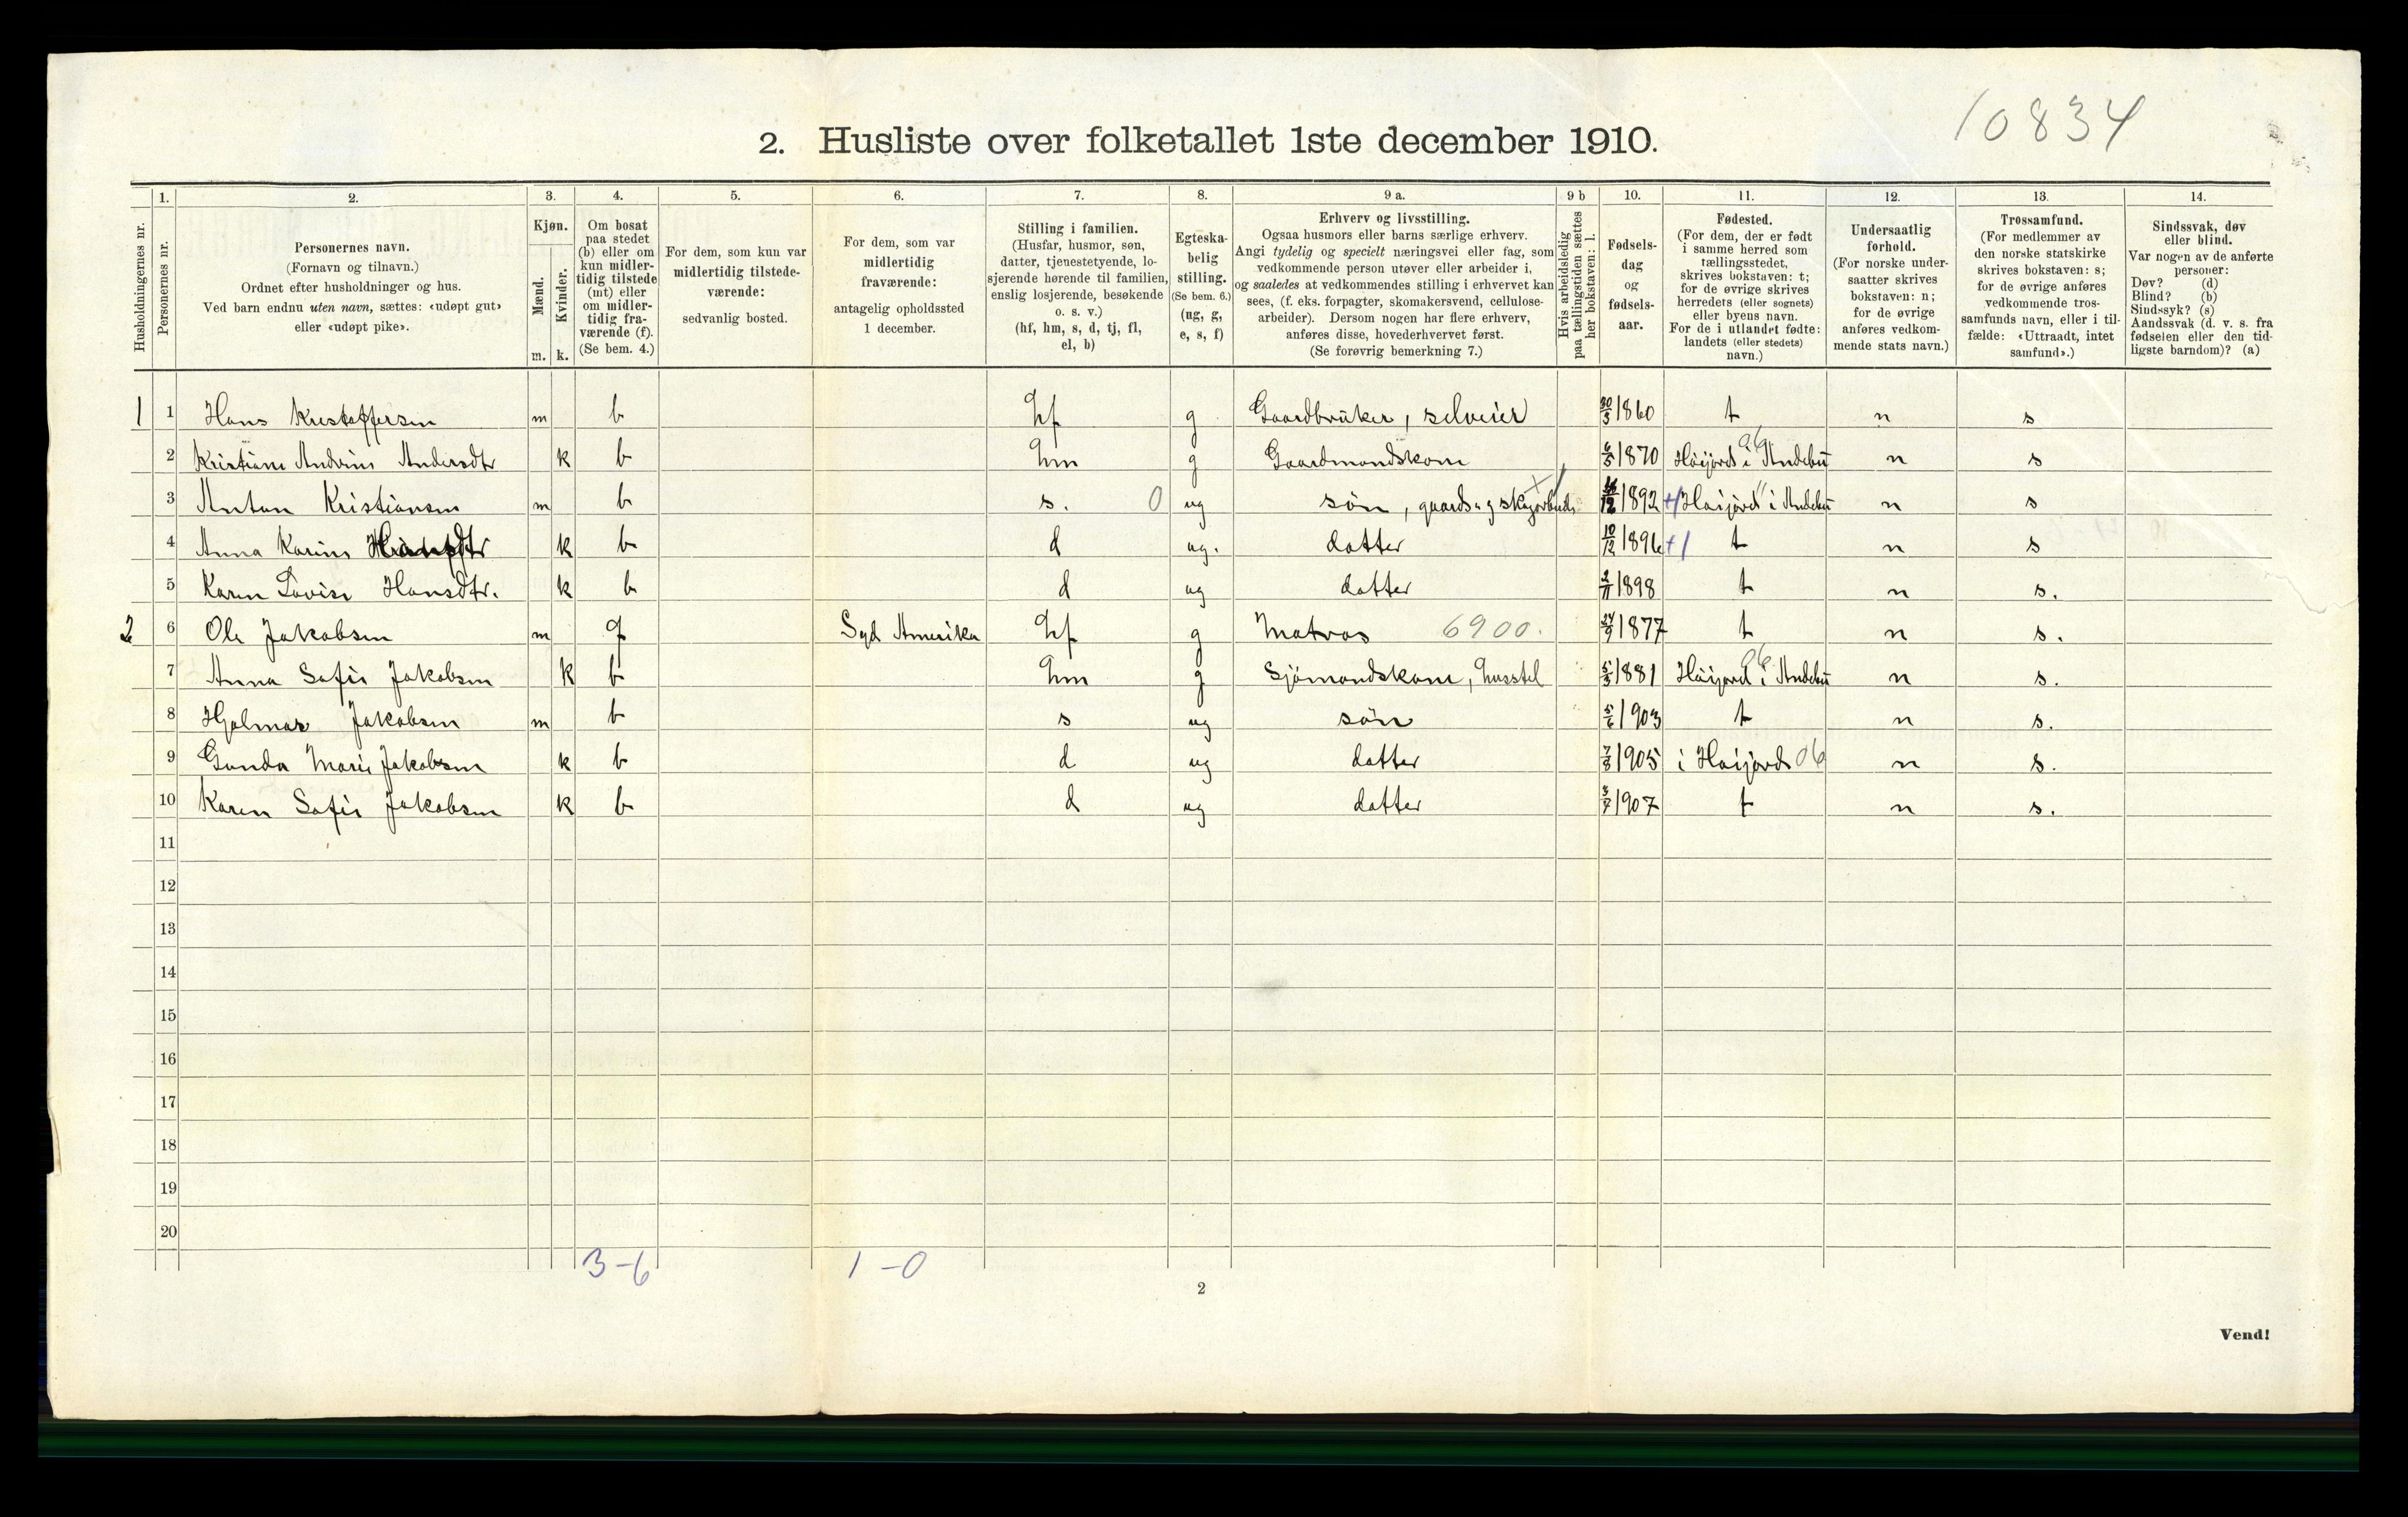 10834
2. Husliste over folketallet 1ste december 1910.
1. 2. 3. 4. 5. 6. 7. 8. 9 a. 9 b 10. 11. 12. 13. 14.
Husholdningernes nr.
Personernes nr.
Personernes navn.
(Fornavn og tilnavn.)
Ordnet efter husholdninger og hus.
Ved barn endnu uten navn, sættes: «udøpt gut»
eller «udøpt pike».
Kjøn.
Mænd.
Kvinder.
m. k.
Om bosat
paa stedet
(b) eller om
kun midler-
tidig tilstede
(mt) eller
om midler-
tidig fra-
værende (f).
(Se bem. 4.)
For dem, som kun var
midlertidig tilstede-
værende:
sedvanlig bosted.
For dem, som var
midlertidig
fraværende:
antagelig opholdssted
1 december.
Stilling i familien.
(Husfar, husmor, søn,
datter, tjenestetyende, lo-
sjerende hørende til familien,
enslig losjerende, besøkende
o. s. v.)
(hf, hm, s, d, tj, fl,
el, b)
Egteska-
belig
stilling.
(Se bem. 6.)
(ug, g,
e, s, f)
Erhverv og livsstilling.
Ogsaa husmors eller barns særlige erhverv.
Angi tydelig og specielt næringsvei eller fag, som
vedkommende person utøver eller arbeider i,
og saaledes at vedkommendes stilling i erhvervet kan
sees, (f. eks. forpagter, skomakersvend, cellulose-
arbeider). Dersom nogen har flere erhverv,
anføres disse, hovederhvervet først.
(Se forøvrig bemerkning 7.)
Hvis arbeidsledig
paa tællingstiden sættes
her bokstaven: l.
Fødsels-
dag
og
fødsels-
aar.
Fødested.
(For dem, der er født
i samme herred som
tællingsstedet,
skrives bokstaven: t;
for de øvrige skrives
herredets (eller sognets)
eller byens navn.
For de i utlandet fødte:
landets (eller stedets)
navn.)
Undersaatlig
forhold.
(For norske under-
saatter skrives
bokstaven: n;
for de øvrige
anføres vedkom-
mende stats navn.)
Trossamfund.
(For medlemmer av
den norske statskirke
skrives bokstaven: s;
for de øvrige anføres
vedkommende tros-
samfunds navn, eller i til-
fælde: «Uttraadt, intet
samfund».)
Sindssvak, døv
eller blind.
Var nogen av de anførte
personer:
Døv? (d)
Blind? (b)
Sindssyk? (s)
Aandssvak (d. v. s. fra
fødselen eller den tid-
ligste barndom)? (a)
1 1 Hans Kristoffersen m b hf g Gaardbruker, selveier 30/3 1860 t n s
2 Kristiane Andrine Andersdtr k b hm g Gaardmandskone 6/5 1870 Høijord i Andebu n s
3 Anton Kristiansen m b s. 0 ug søn, gaards- og skogarbeide 1892 +1 Høijord i Andebu n s
4 Anna Karine Hansdtr k b d ug. datter 10/12 1896 +1 t n s
5 Karen Lovise Hansdtr. k b d ug datter 2/11 1898 t n s.
2 6 Ole Jakobsen m f Syd Amerika hf g Matros 6900. 24/9 1877 t n s.
7 Anna Sofie Jakobsen k b hm g Sjömandskone, husstel 5/3 1881 Høijord i Andebu n s.
8 Hjalmar Jakobsen m b s ug søn 5/6 1903 t n s.
9 Gunda Marie Jakobsen k b d ug datter 7/8 1905 i Høijord 06 n s.
10 Karen Sofie Jakobsen k b d ug datter 3/7 1907 t n s.
11
12
13
14
15
16
17
18
19
20
3-6 1-0
2
Vend!